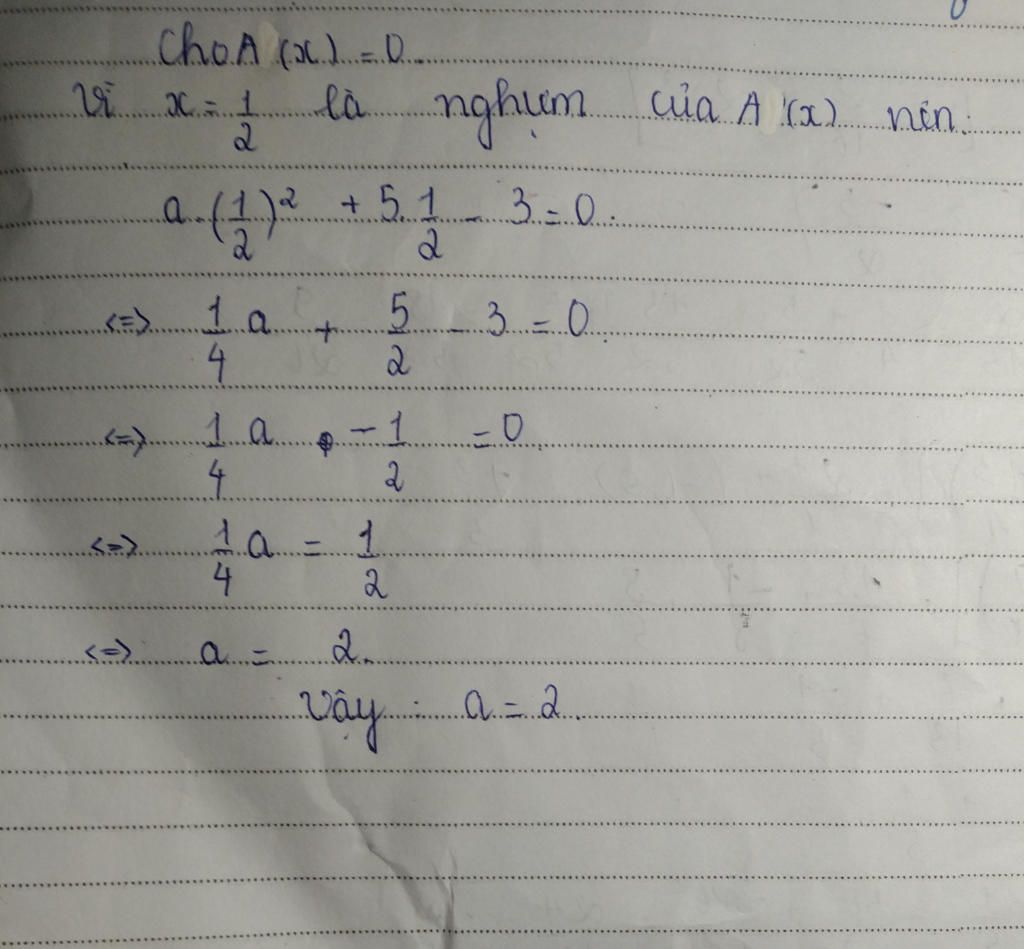 Cho A(x) = 0.
Vì x = 1/2 là nghiệm của A(x) nên:
a.(1/2)² + 5.1/2 - 3 = 0.
<=> 1/4 a + 5/2 - 3 = 0.
<=> 1/4 a - 1/2 = 0.
<=> 1/4 a = 1/2
<=> a = 2.
Vậy : a = 2.